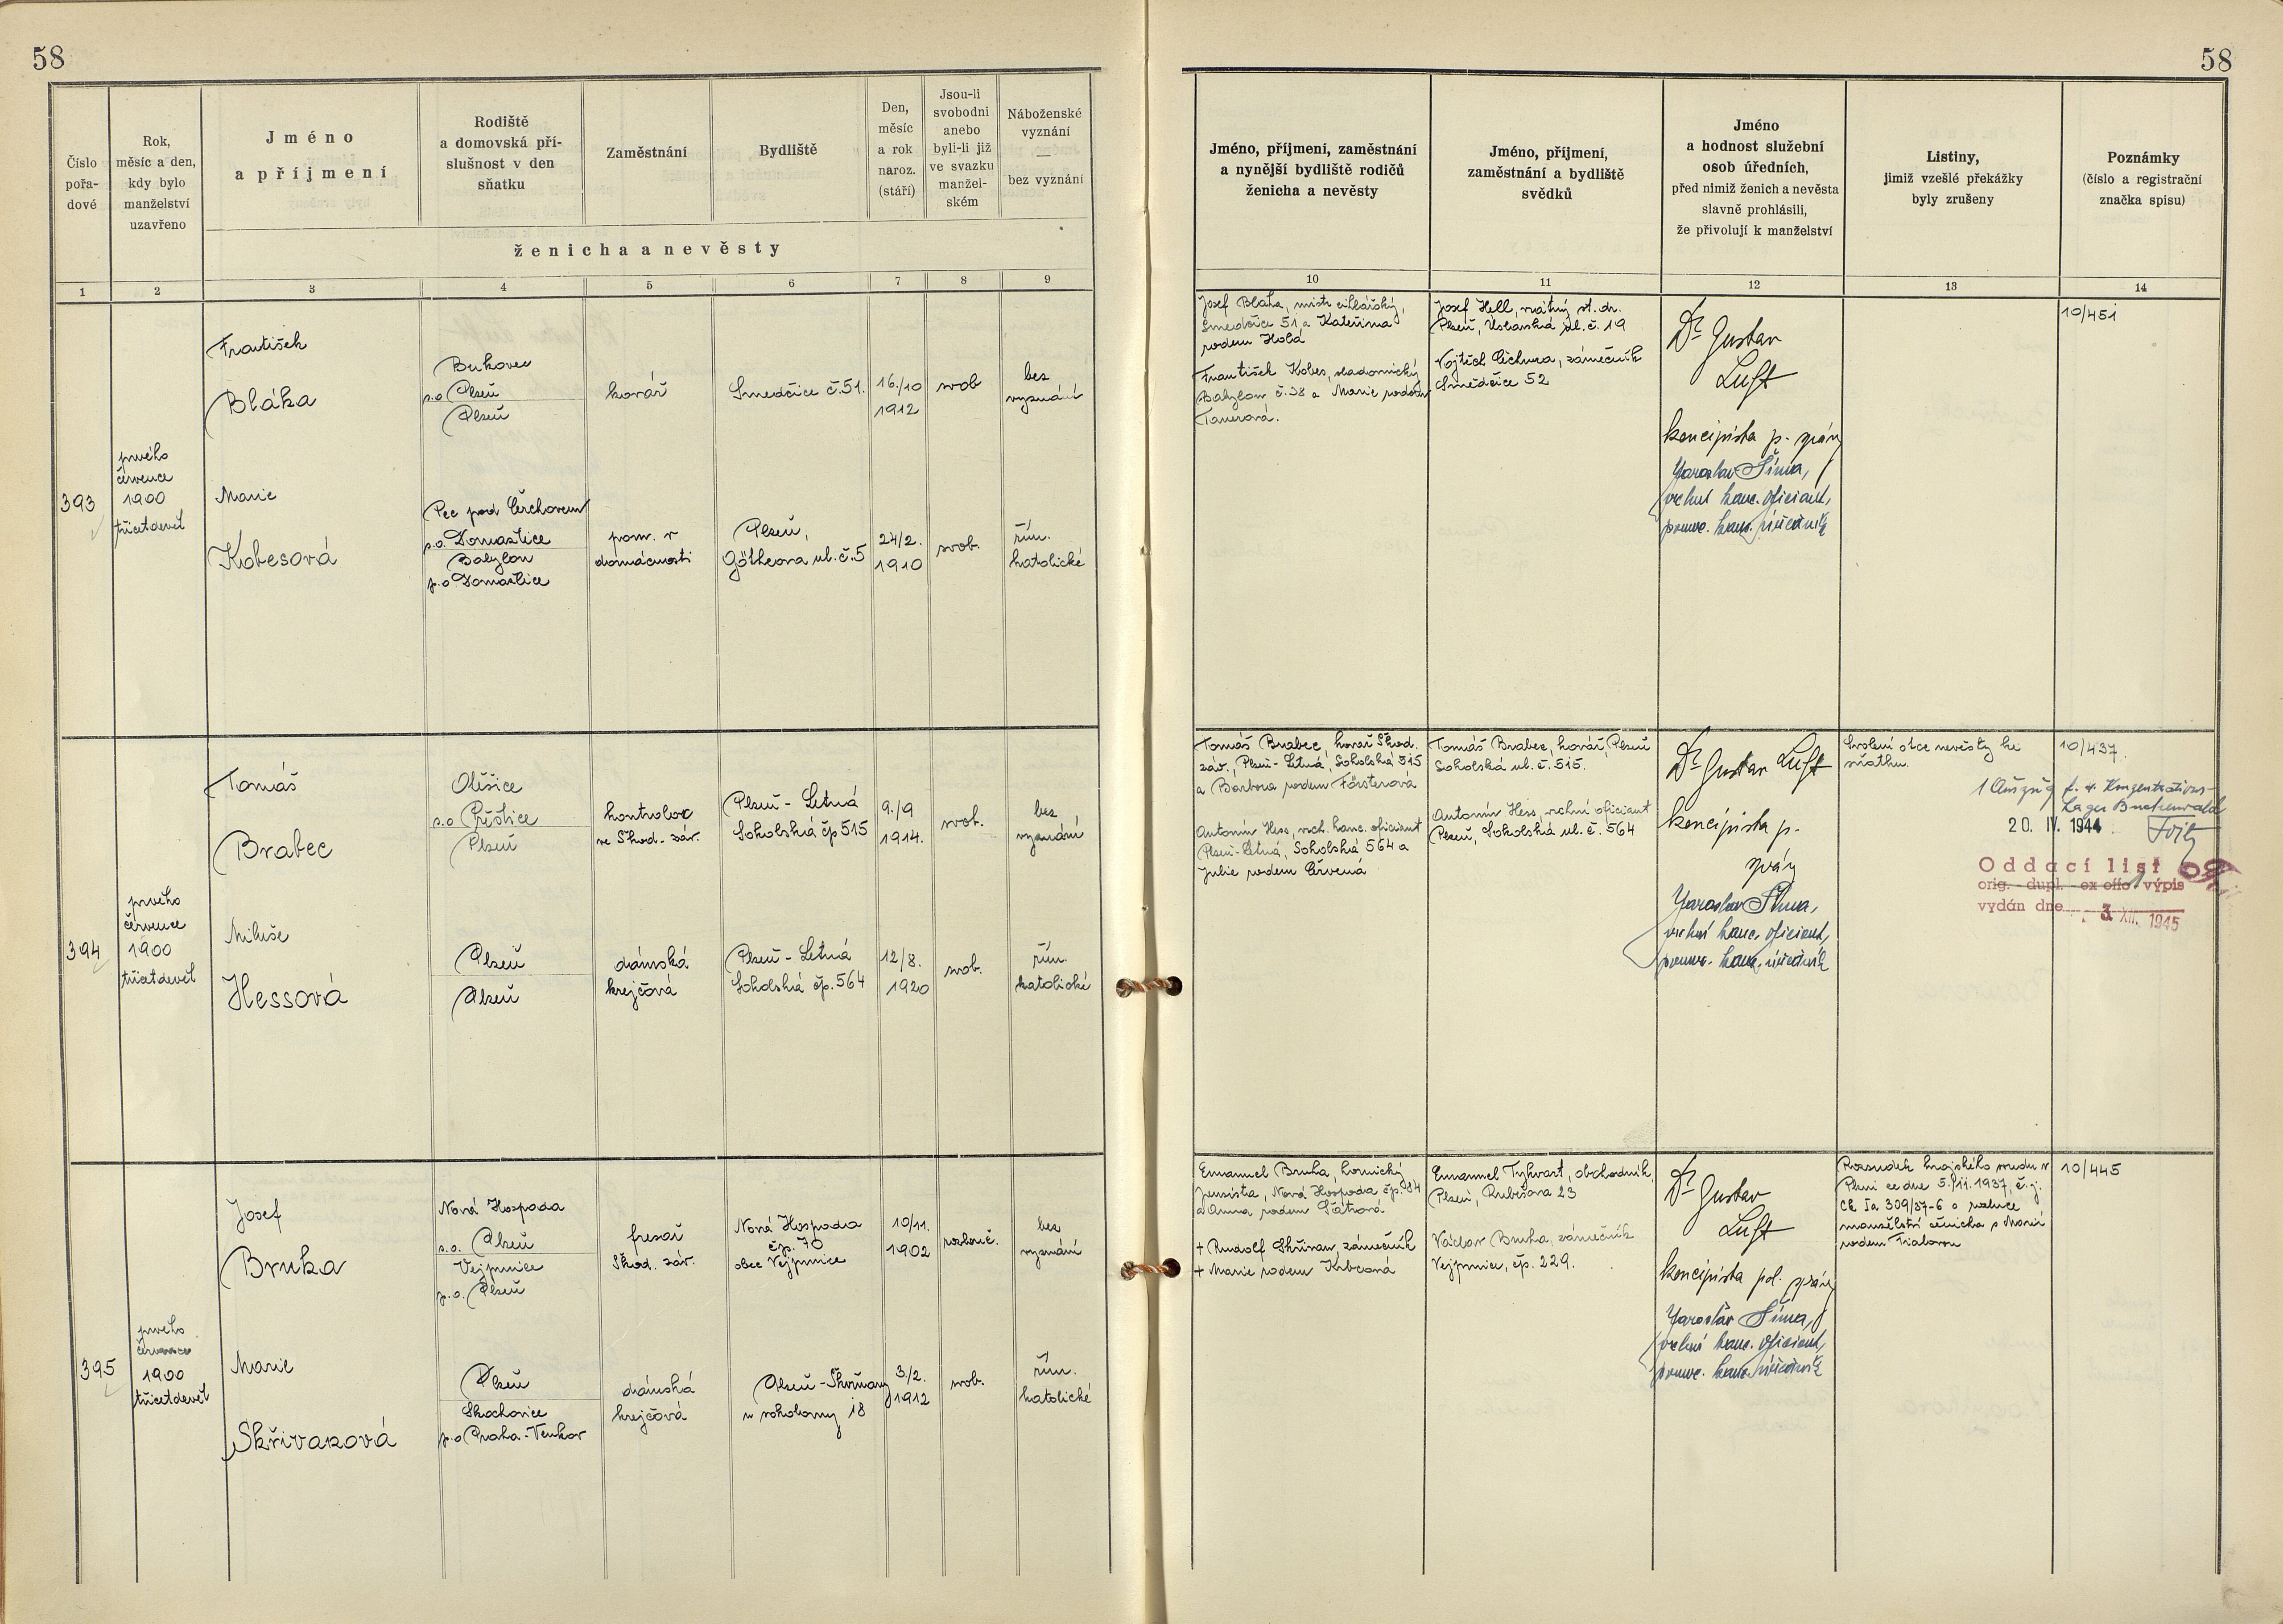 58
58
Číslo
pořa-
dové
Rok,
měsíc a den,
kdy bylo
manželství
uzavřeno
Jméno
a příjmení
Rodiště
a domovská pří-
slušnost v den
sňatku
Zaměstnání
Bydliště
Den,
měsíc
a rok
naroz.
(stáří)
Jsou-li
svobodni
anebo
byli-li již
ve svazku
manžel-
ském
Náboženské
vyznání
—
bez vyznání
ženicha a nevěsty
Jméno, příjmení, zaměstnání
a nynější bydliště rodičů
ženicha a nevěsty
Jméno, příjmení,
zaměstnání a bydliště
svědků
Jméno
a hodnost služební
osob úředních,
před nimiž ženich a nevěsta
slavně prohlásili,
že přivolují k manželství
Listiny,
jimiž vzešlé překážky
byly zrušeny
Poznámky
(číslo a registrační
značka spisu)
1 2 3 4 5 6 7 8 9 10 11 12 13 14
393
prvého
července
1900
třicetdevět
František
Bláha
Bukovec
p.o. Plzeň
Plzeň
kovář
Smedčice č.51.
16./10
1912
svob
bez
vyznání
Marie
Kobesová
Pec pod Čerchovem
p.o. Domažlice
Babylon
p.o Domažlice
pom. v
domácnosti
Plzeň,
Götheova ul. č.5
24/2.
1910
svob.
řím.
katolické
Josef Bláha, mistr cihlářský,
Smedčice 51 a Kateřina
rodem Holá
František Kobes,
Babylon č.38 a Marie rodem
Tauerová.
Josef Hell,
Plzeň, ul. č. 19
Vojtěch Cichura, zámečník
Smedčice 52
Dr Gustav
Luft
koncipista p. správy
Jaroslav Šíma,
vrchní kanc. oficiant,
pomoc. kanc. úředník
10/451
394
prvého
července
1900
třicetdevět
Tomáš
Brabec
Oléšice
p.o Přeštice
Plzeň
kontrolor
ve Škod. záv.
Plzeň - Letná
Sokolská čp 515
9./9
1914.
svob.
bez
vyznání
Miluše
Hessová
Plzeň
Plzeň
dámská
krejčová
Plzeň - Letná
Sokolská čp. 564
12/8.
1920
svob.
řím.
katolické
Tomáš Brabec, kovář Škod.
záv., Plzeň - Letná, Sokolská 515
a Barbora rodem Försterová
Antonín Hess, vrch. kanc. oficiant
Plzeň-Letná, Sokolská 564 a
Julie rodem Červená
Tomáš Brabec, kovář, Plzeň
Sokolská ul. č. 515.
Antonín Hess, vrchní oficiant
Plzeň, Sokolská ul. č. 564
Dr Gustav Luft
koncipista p.
správy
Jaroslav Šíma,
vrchní kanc. oficiant,
pomoc. kanc. úředník
Svolení otce nevěsty ke
sňatku.
10/437.
1 Auszug f. d. Konzentrations-
Lager Buchenwald
20. IV. 1944
Oddací list
orig. - dupl. - ex offo výpis
vydán dne 3. XII. 1945
395
prvého
července
1900
třicetdevět
Josef
Bruha
Nová Hospoda
p.o. Plzeň
Vejprnice
p.o. Plzeň
fresař
Škod. záv.
Nová Hospoda
čp. 70
obec Vejprnice
10/11.
1902
rozluč.
bez
vyznání
Marie
Skřivanová
Plzeň
Skochovice
p.o Praha-Venkov
dámská
krejčová
Plzeň - Skvrňany
u sokolovny 18
3/2.
1912
svob.
řím.
katolické
Emanuel Bruha, hornický
Nová Hospoda čp. 84
a Anna rodem
+ Rudolf Skřivan, zámečník
+ Marie rodem
Emanuel Tyhvart, obchodník,
Plzeň, Rubešova 23
Václav Bruha, zámečník
Vejprnice, čp. 229.
Dr Gustav
Luft
koncipista pol. správy
Jaroslav Šíma,
vrchní kanc. oficiant,
pomoc. kanc. úředník
Rozsudek krajského soudu v
Plzni ze dne 5./11. 1937, č.j.
Ck Ia 309/37-6 o rozluce
manželství ženicha s Marií
rodem Fialovou
10/445